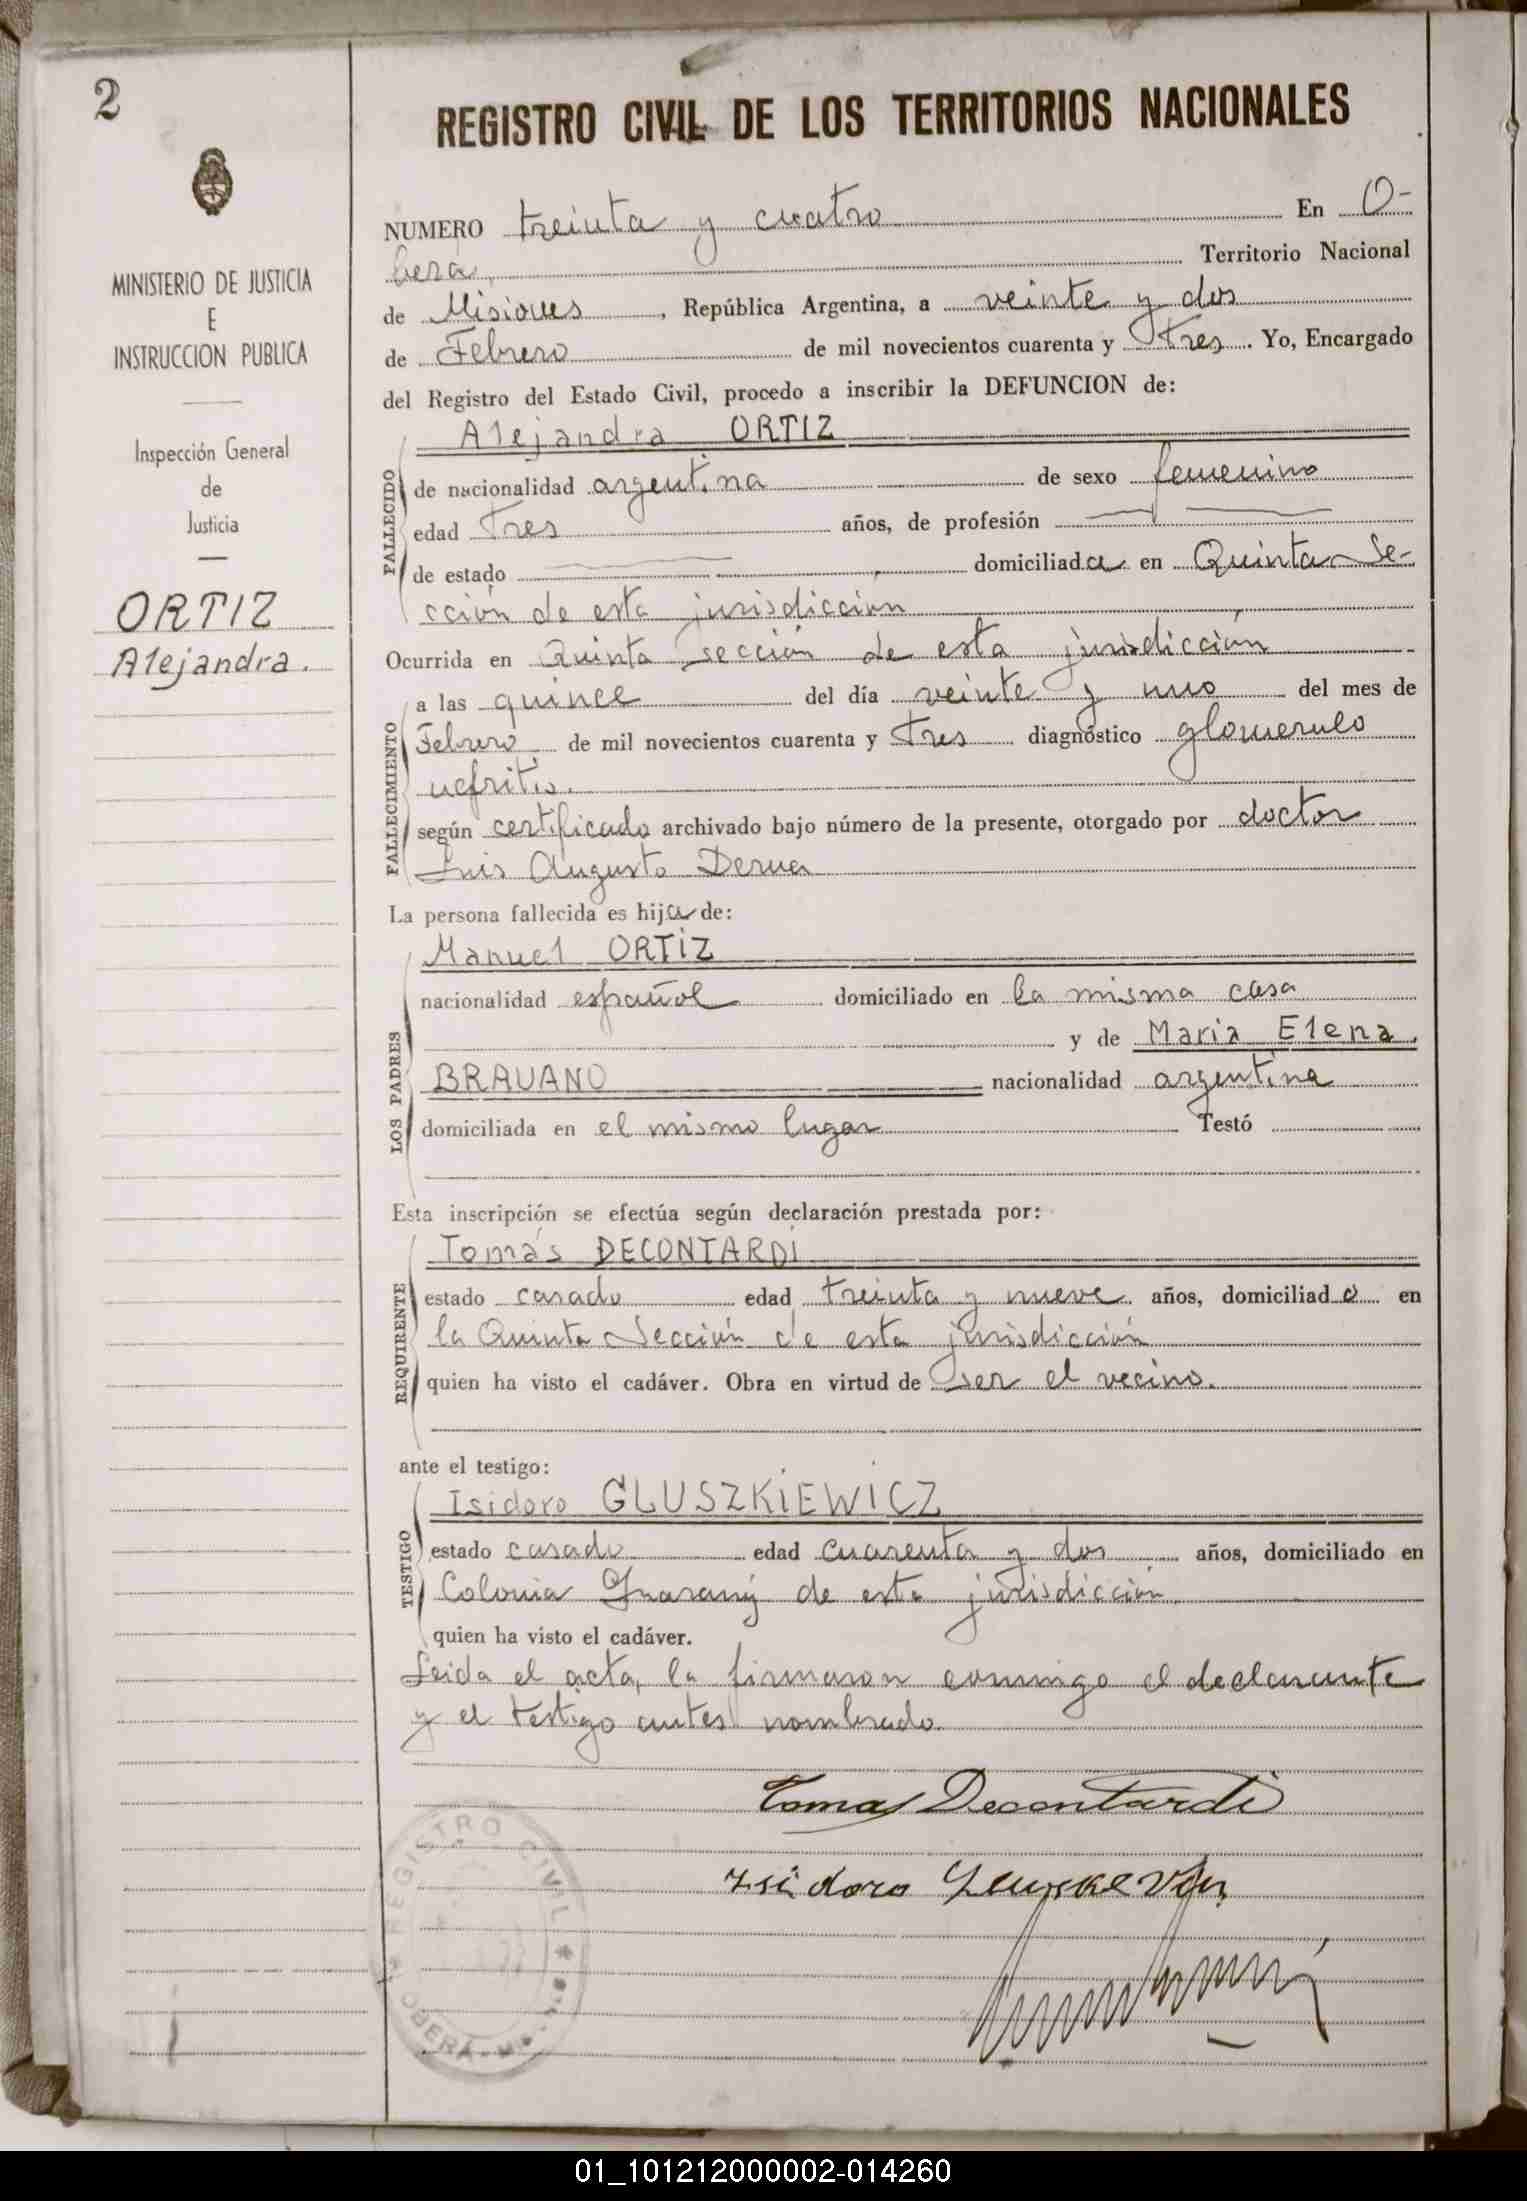 2
REGISTRO CIVIL DE LOS TERRITORIOS NACIONALES
MINISTERIO DE JUSTICIA
E
INSTRUCCION PUBLICA
Inspección General
de
Justicia
ORTIZ
Alejandra.
NUMERO treinta y cuatro En O-
bera, Territorio Nacional
de Misiones, República Argentina, a veinte y dos
de Febrero de mil novecientos cuarenta y tres. Yo, Encargado
del Registro del Estado Civil, procedo a inscribir la DEFUNCION de:
Alejandra ORTIZ
FALLECIDO
de nacionalidad argentina de sexo femenino
edad tres años, de profesión
de estado domiciliada en Quinta Se-
cción de esta jurisdicción
Ocurrida en Quinta sección de esta jurisdicción
FALLECIMIENTO
a las quince del día veinte y uno del mes de
Febrero de mil novecientos cuarenta y tres diagnóstico glomerulo
nefritis.
según certificado archivado bajo número de la presente, otorgado por doctor
Luis Augusto
La persona fallecida es hija de:
LOS PADRES
Manuel ORTIZ
nacionalidad español domiciliado en la misma casa
y de Maria Elena
BRAUANO nacionalidad argentina
domiciliada en el mismo lugar Testó
Esta inscripción se efectúa según declaración prestada por:
REQUIRENTE
Tomás DECONTARDI
estado casado edad treinta y nueve años, domiciliado en
la Quinta Sección de esta jurisdicción
quien ha visto el cadáver. Obra en virtud de ser el vecino.
ante el testigo:
TESTIGO
Isidoro GLUSZKIEWICZ
estado casado edad cuarenta y dos años, domiciliado en
Colonia Guarany de esta jurisdicción
quien ha visto el cadáver.
Leida el acta, la firmaron conmigo el declarante
y el testigo antes nombrado.
Tomas Decontardi
Isidoro
REGISTRO CIVIL
OBERÁ
01_101212000002-014260